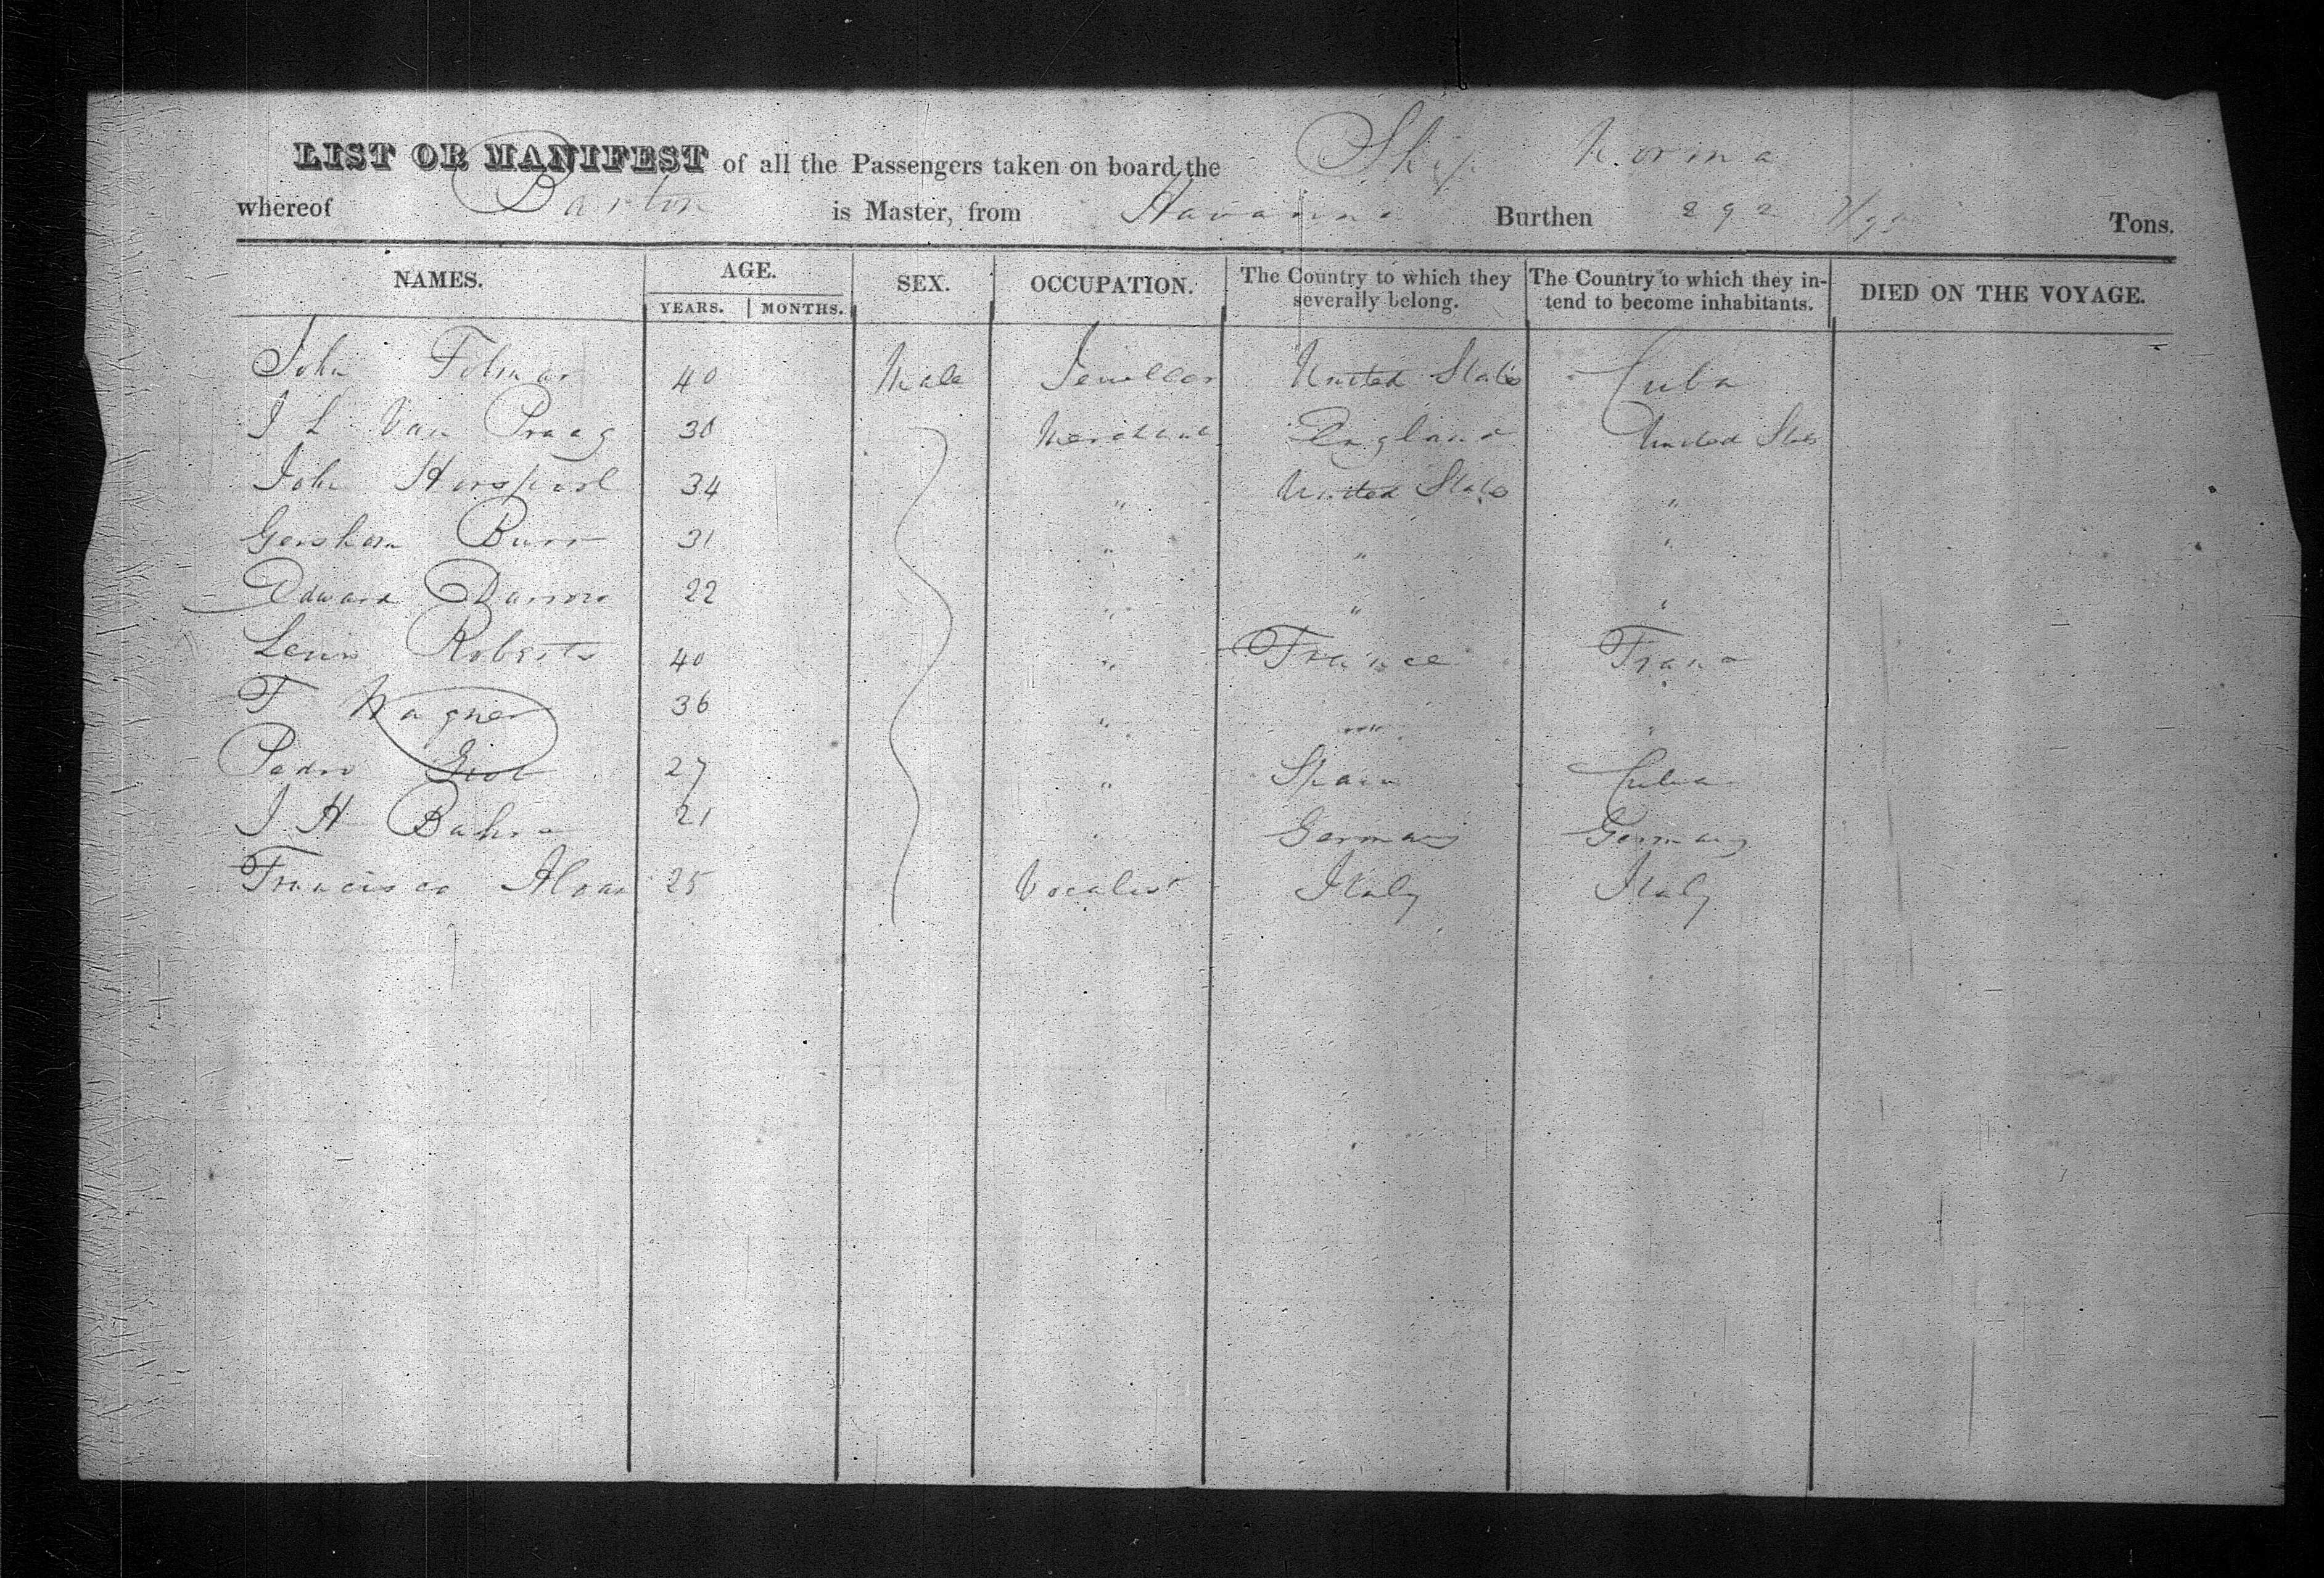 LIST OR MANIFEST of all the Passengers taken on board the Ship Norma
whereof Barton is Master, from Havanna Burthen 292 7/95 Tons.
NAMES. AGE. SEX. OCCUPATION. The Country to which they severally belong. The Country to which they in- tend to become inhabitants. DIED ON THE VOYAGE.
YEARS. MONTHS.
John 40 Male Jeweller United States Cuba
J L Van Praag 30 Merchant England United States
John 34 " United States "
Gershom Burr 31 " " "
Edward 22 " " "
Lewis Roberts 40 " France France
F Wagner 36 " " "
Pedro 27 " Spain Cuba
J H 21 " Germany Germany
Francisco 25 Vocalist Italy Italy